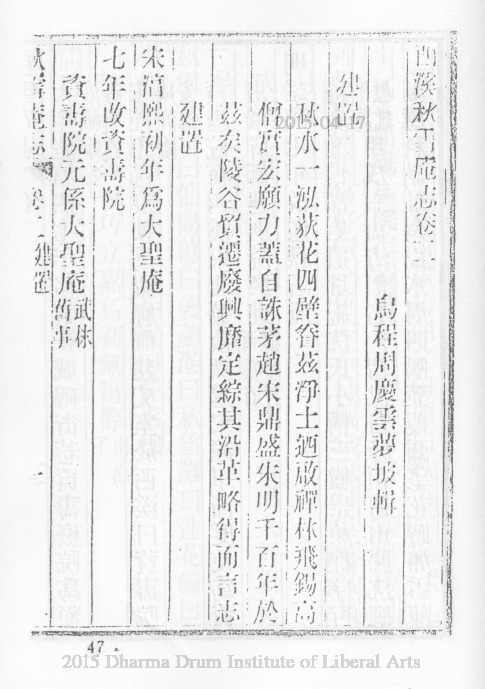 西溪秋雪庵志卷二
烏程周慶雲夢坡輯
建置
秋水一泓荻花四壁眷茲淨土廼啟禪林飛錫高
僧實宏願力蓋自誅茅趙宋鼎盛朱明千百年於
茲矣陵谷貿遷廢興靡定綜其沿革略得而言志
建置
宋淳熙初年為大聖庵
七年改資壽院
資壽院元係大聖庵武林舊事
秋雪庵志 卷二建置 一
2015-04-17
47
2015 Dharma Drum Institute of Liberal Arts